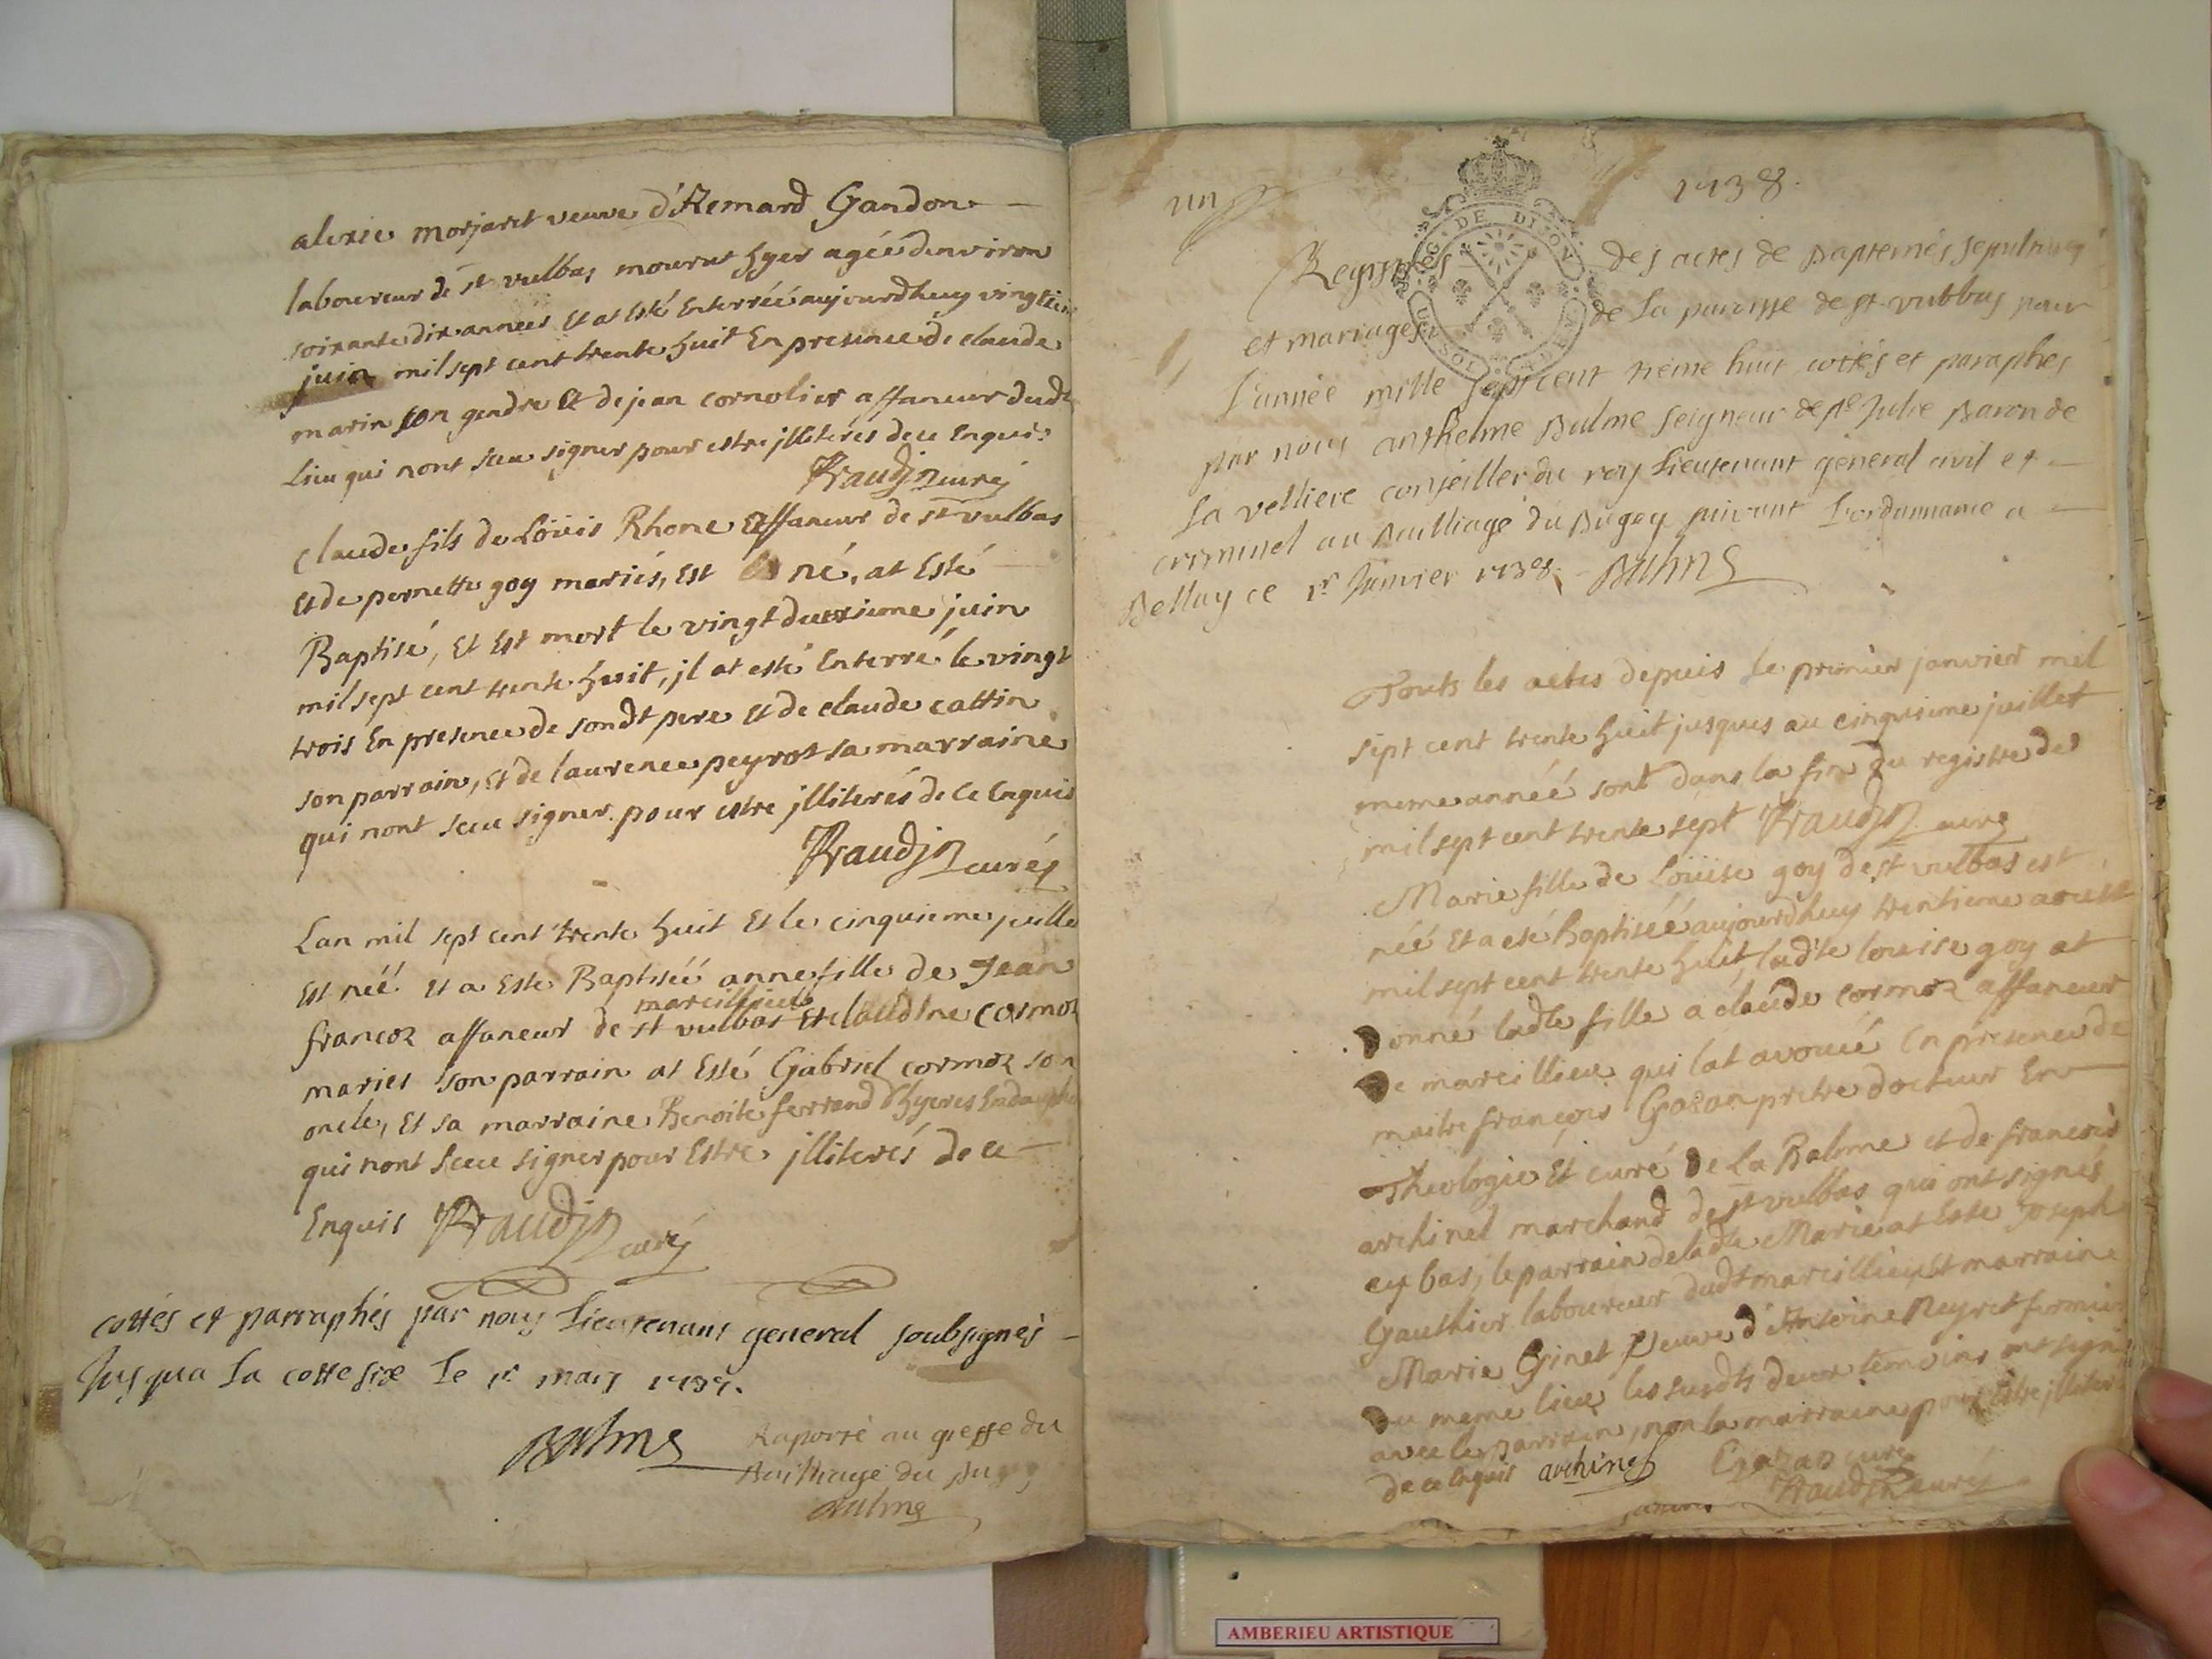 alexie morjaret veuve d'Remard Gandon
laboureur de st vulbas mourut hyer agéé denviron
soixante dix années Et at Esté Enterréé aujourdhuy vingtieme
juin mil sept cent trente huit En presence de claude
marin son gendre Et de jean cornolier affaneur dudt
Lieu qui nont sceu signer pour estre jlliterés de ce Enquis
Fraudin curé
Claude fils de Loüis Rhone affaneur de st vulbas
Et de pernette goy mariés, Est né, at Esté
Baptisé, Et Est mort le vingt deuxieme juin
mil sept cent trente huit, jl at esté Enterré le vingt
trois En presence de sondt pere Et de claude cattin
son parrain, Et de laurence peyrot sa marraine
qui nont sceu signer pour estre jlliterés de ce Enquis
Fraudin curé
Lan mil sept cent trente huit Et le cinquieme juille
Est néé Et a Esté Baptiséé anne fille de Jean
marcillieu
françoz affaneur de st vulbas Et claudine cormoz
mariés son parrain at Esté Gabriel cormoz son
oncle, Et sa marraine Benoite ferrand d'hyeres En dauphi
qui nont sceu signer pour Estre jlliterés de ce
Enquis Fraudin curé
cottés et parraphés par nous Lieutenant general soubsignés
Jusqua La cotte six Le 1r mars 1737.
Balme Raporté au greffe du
Bailliage du Bugey
Balme
un 1738.
DE DIJON
Registres des actes de Baptemes sepultures
et mariages de La paroisse de st vulbas pour
L'année mille sept cent trente huit cottés et paraphés
par nous anthelme Balme seigneur de ste Julie Baron de
La velliere conseiller du roy Lieutenant general civil et
criminel au Bailliage du Bugey suivant L'ordonnance a
Belley ce 1r Janvier 1738. Balme
Touts les actes depuis le premier janvier mil
sept cent trente huit jusques au cinquieme juillet
meme annéé sont dans la fin du registre de
mil sept cent trente sept Fraudin curé
Marie fille de Loüise goy de st vulbas est
néé Et a esté Baptiséé aujourdhuy trentieme aoust
mil sept cent trente huit, ladte louise goy at
Donné ladte fille a claude cormoz affaneur
De marcillieu qui lat avoüé En presence de
maitre françois Gazan pretre docteur En
Theologie Et curé de La Balme et de françois
archinet marchand de st vulbas qui ont signés
cy bas, le parrain de ladte Marie at Esté Joseph
Gauthier laboureur dudt marcillieu Et marraine
Marie Ginet veuve d'Antoine Neyret fermier
Du meme lieu les susdts deux temoins ont signé
avec le parrain, non la marraine pour estre jlliter
de ce Enquis archinet Gazan curé
Fraudin curé
AMBERIEU ARTISTIQUE